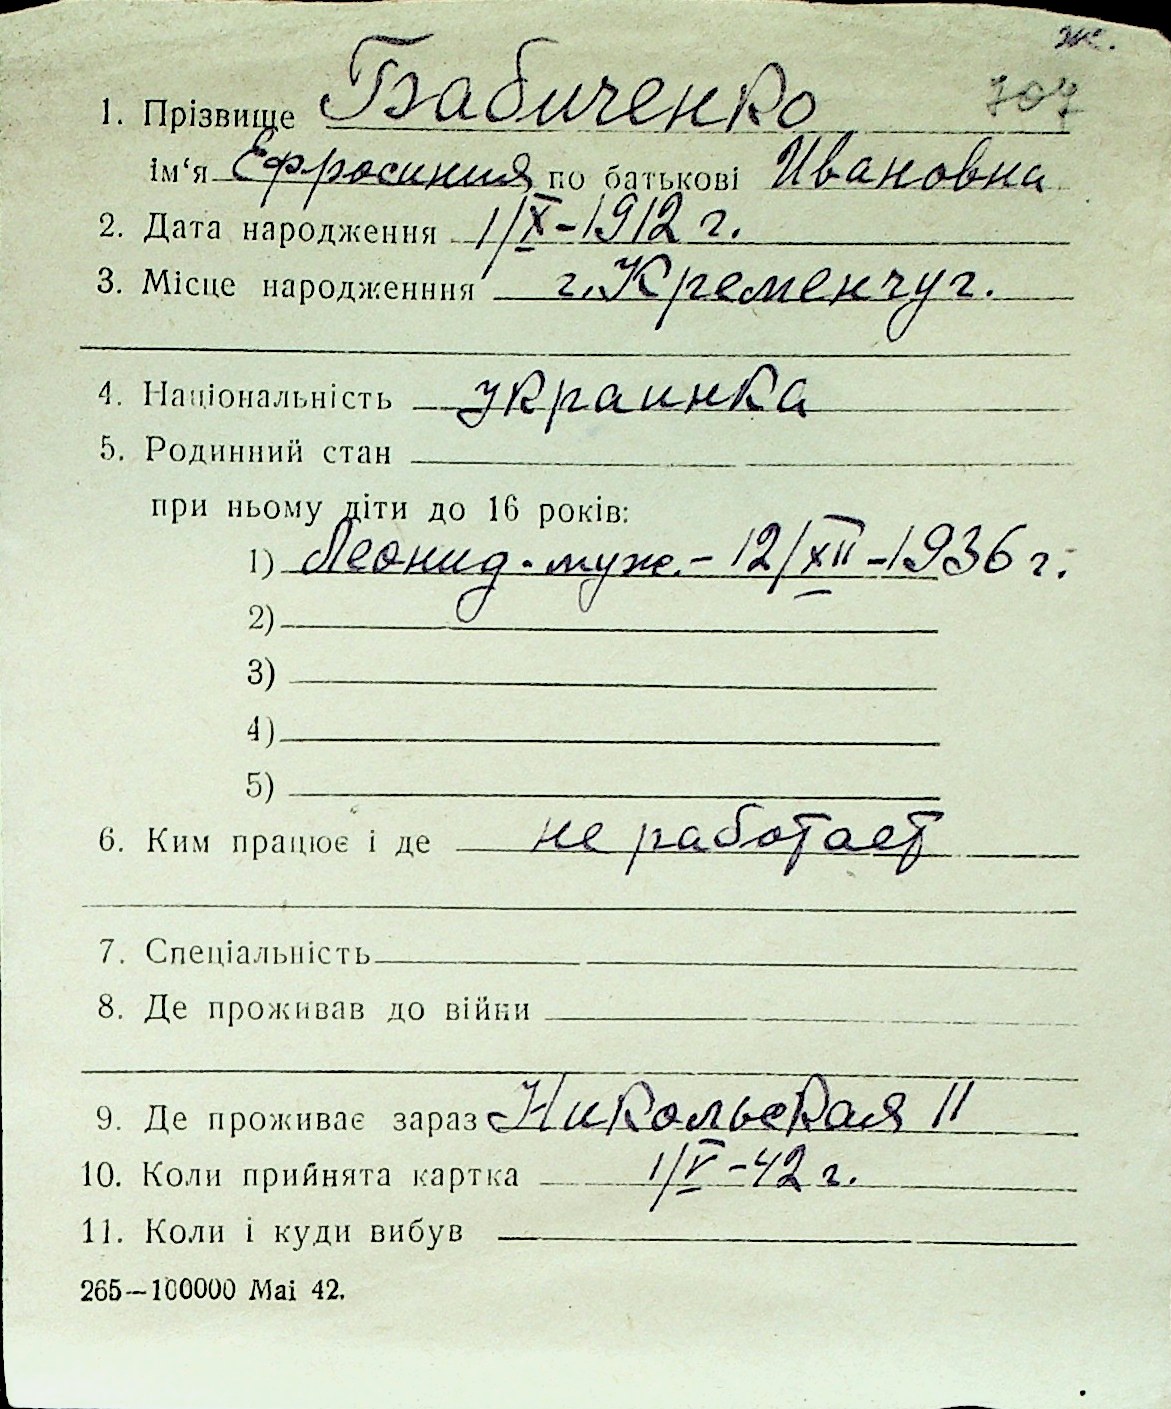 ж.
707
1. Прізвище Бабиченко
ім‘я Ефросиния по батькові Ивановна
2. Дата народження 1/X-1912 г.
3. Місце народженння г. Кременчуг.
4. Національність украинка
5. Родинний стан
при ньому діти до 16 років:
1) Леонид - муж. - 12/XII-1936 г.
2)
3)
4)
5)
6. Ким працює і де не работает
7. Спеціальність
8. Де проживав до війни
9. Де проживає зараз Никольская 11
10. Коли прийнята картка 1/V-42 г.
11. Коли і куди вибув
265—100000 Mai 42.